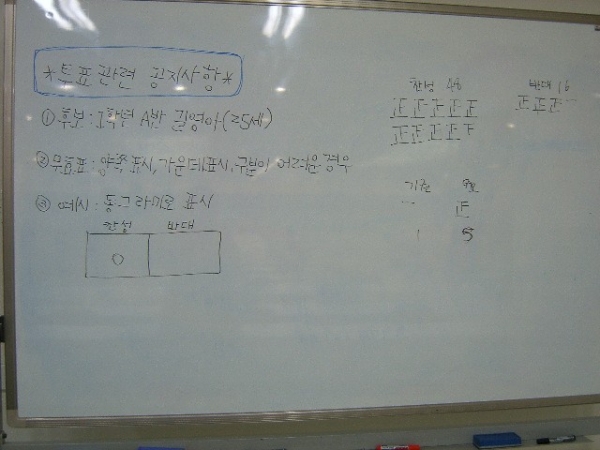 *투표관련 공지사항*
① 후보: 1학년 A반 길영아(25세)
② 무효표: 양쪽표시, 가운데표시, 구분이 어려운 경우
③ 예시: 동그라미로 표시
찬성 반대
○
찬성 48
正正正正正
正正正正
반대 16
正正正
기권
正
1 5